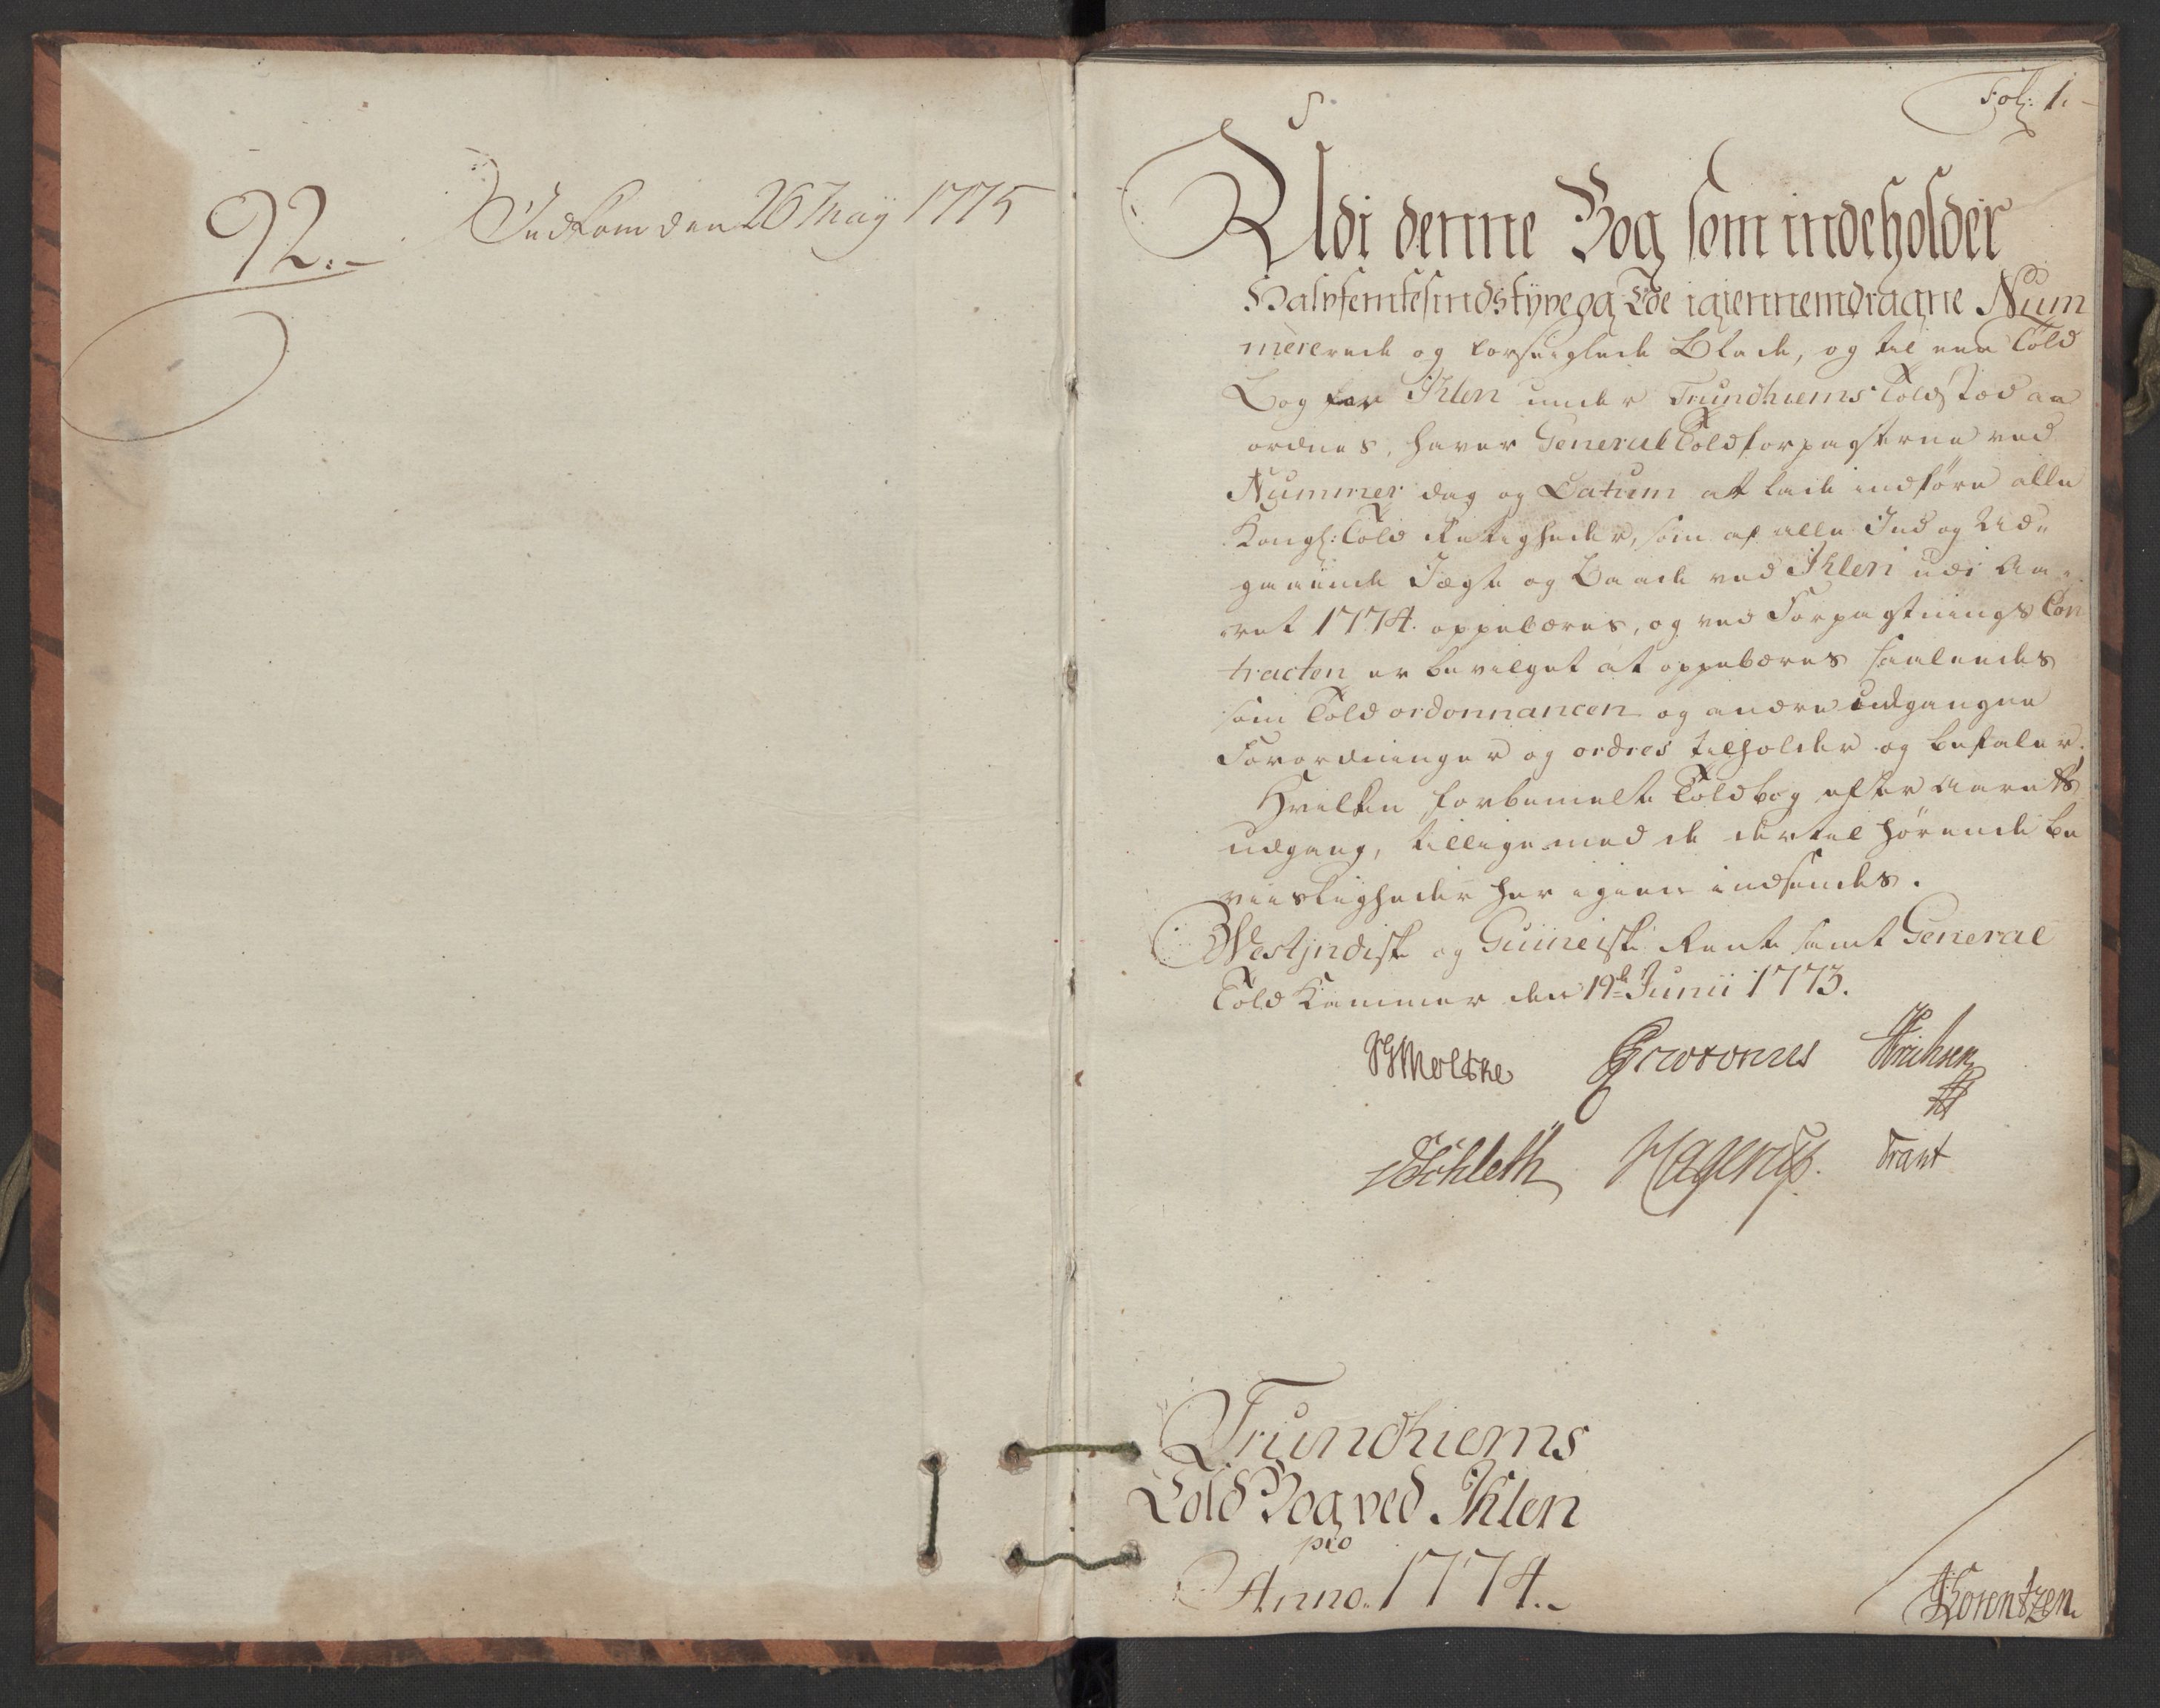 92.-
Indkom den 26 May 1775
Fol: 1.
Udi denne Bog som indeholder
Halvfemtesindstÿve og Toe igiennemdragne Num
mererede og forseiglede Blade, og til een Told
Bog for Ihlen under Trundhiems Toldsted an
ordnes, haver General Toldforpagterne ved
Nummer dag og Datum at lade indføre alle
Kongl: Told Rettigheder, som af alle Ind og Ud-
gaaende Jægte og Baade ved Ihlen udi Aa-
ret 1774. oppebæres, og ved Forpagtnings Con
tracten er bevilget at oppebæres saaledes
som Told ordonnancen og andre udgangne
Forordninger og ordres tilholder og befaler.
Hvilken forbemelte Toldbog efter Aarets
udgang, tilligemed de dertil hørende be
viisligheder her igien indsendes.
Westjndisk og Guineisk Rente samt General
Told Kammer den 19de Junii 1773.
Moltke
Schleth Hagerup. Trant
Trundhiems
Told Bog ved Ihlen
pro
Anno. 1774.-
Lorentzen.